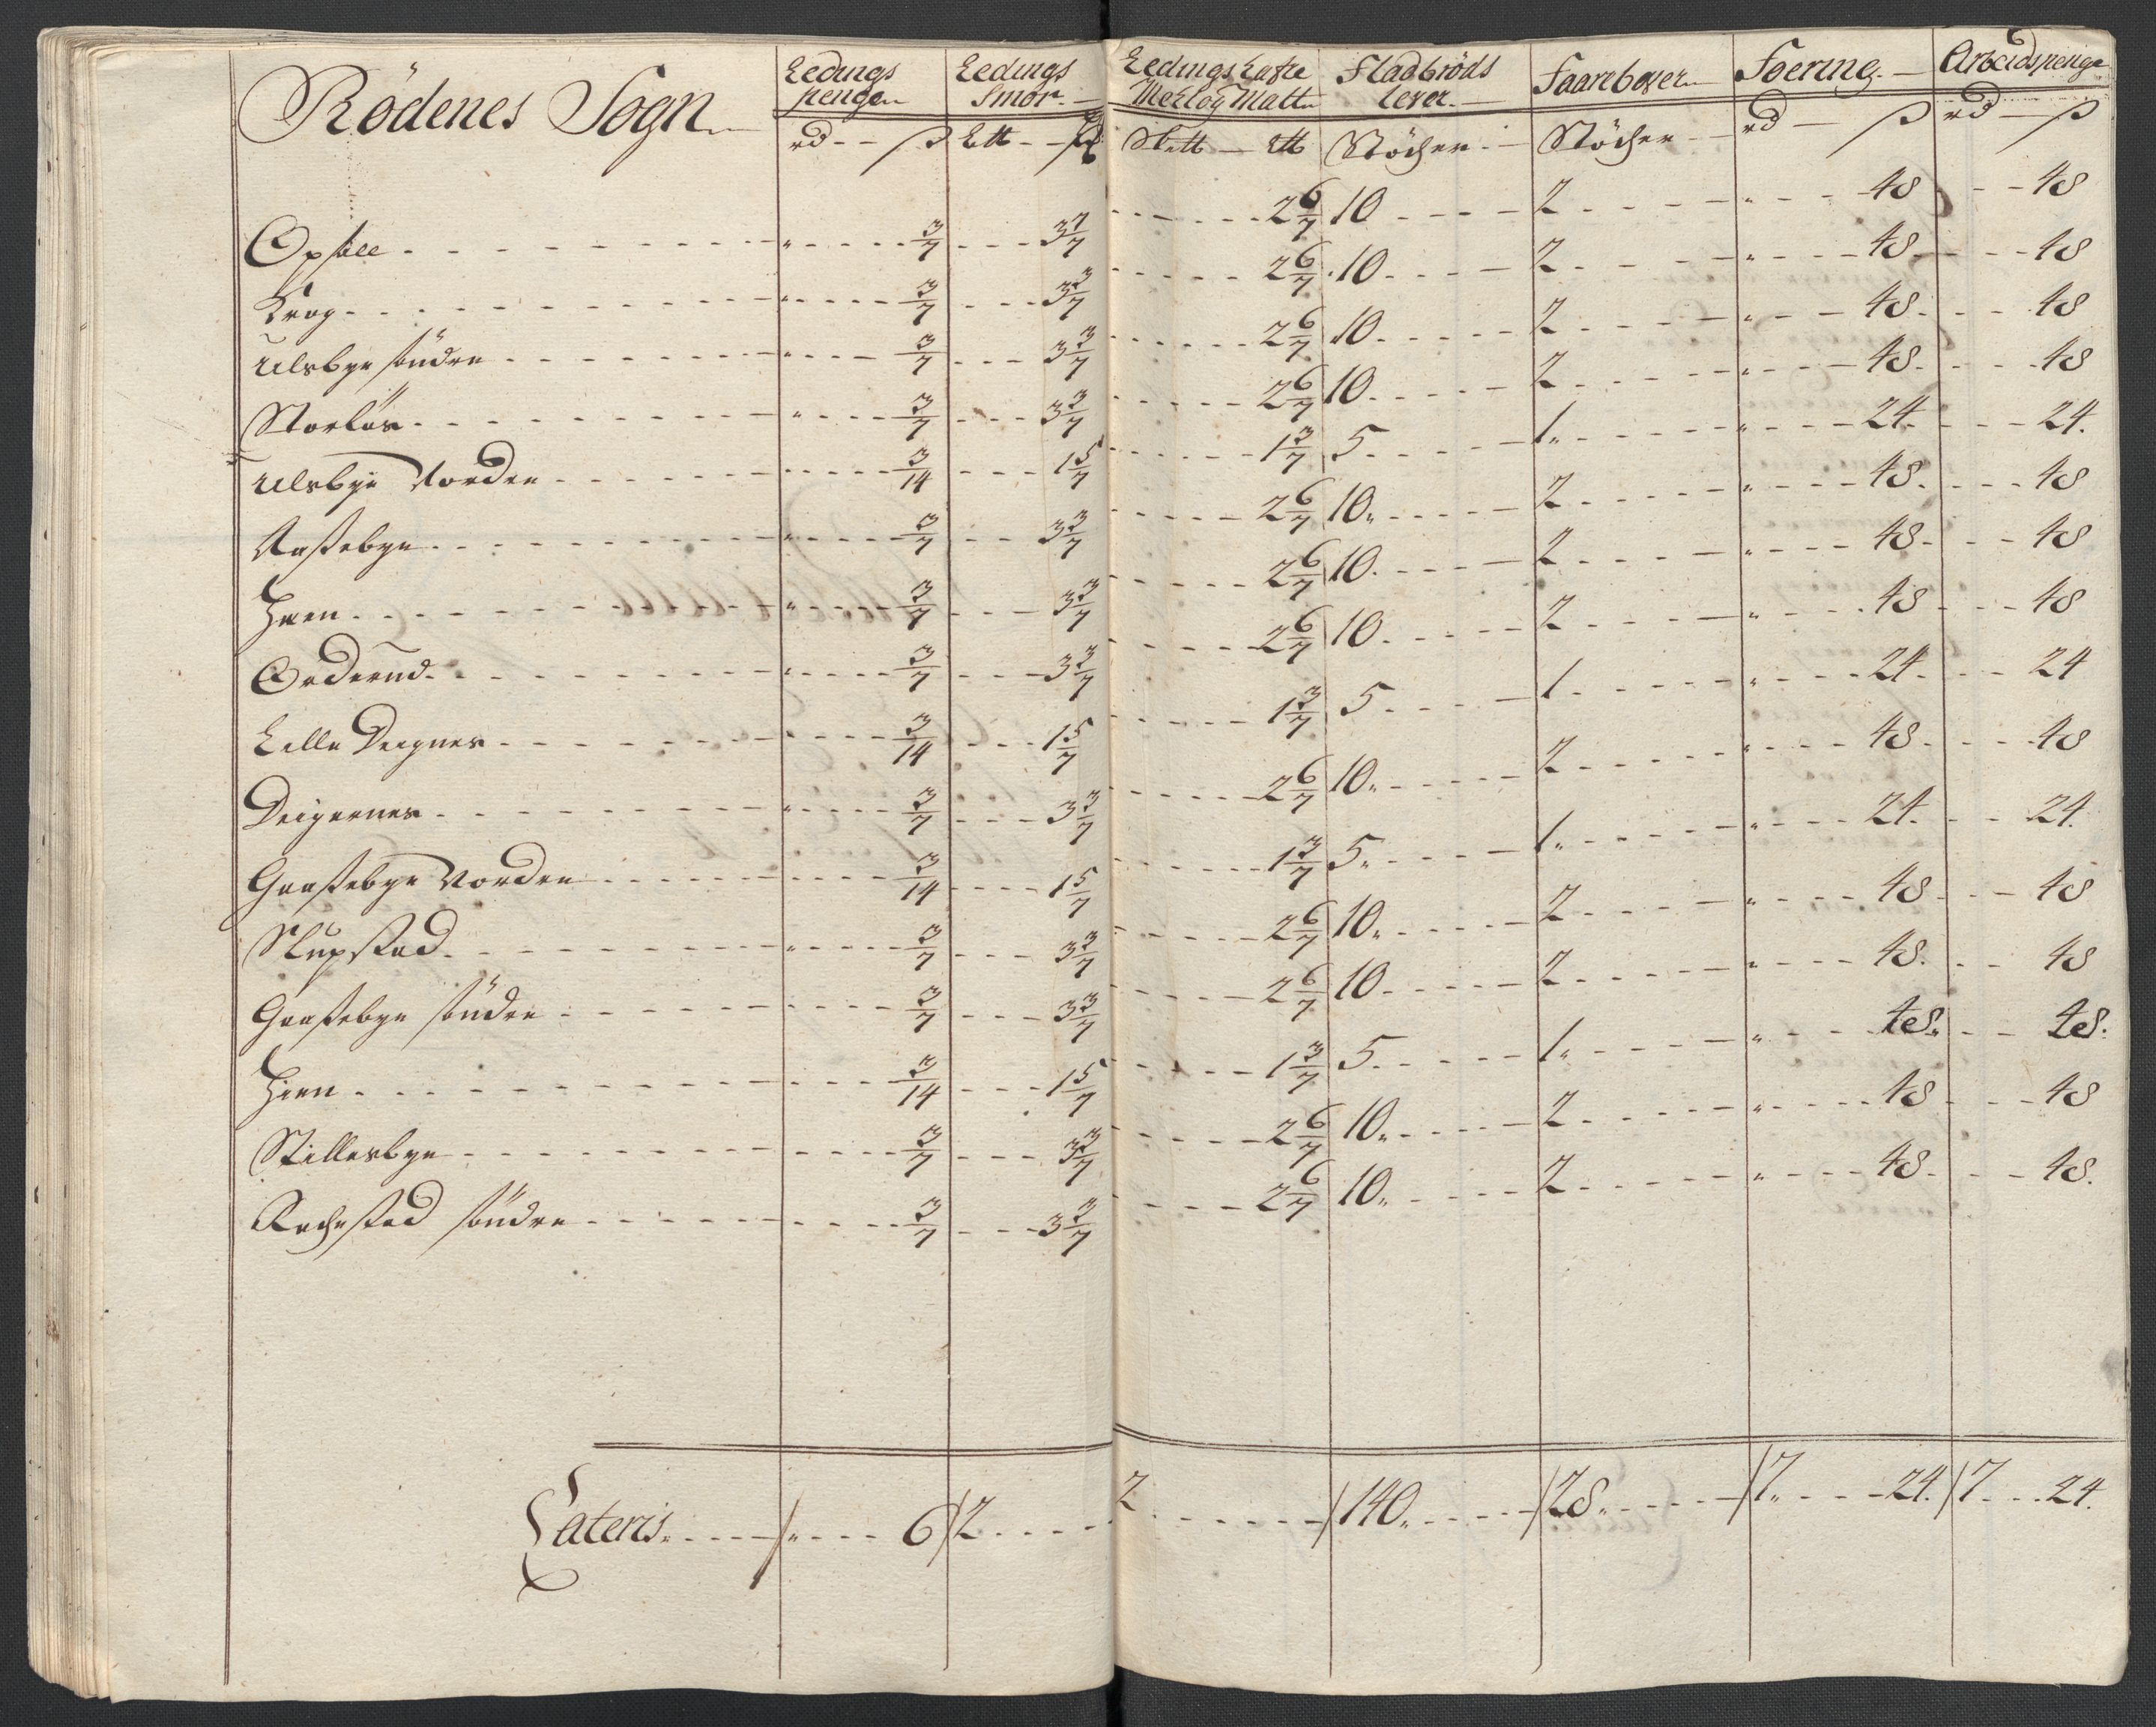 Rödenes Sogn
Ledings penge Ledings Smör Ledings Huste Mehl og Malt Fladbröds lever Faareboger Foering Arbeidspenge
rd ß Stöcher Stöcher rd ß rd ß
Opsall " 3/7 3 3/7 2 6/7 10 2 " 48 48
Krog " 3/7 3 3/7 2 6/7 10 2 " 48 48
Ulsbye söndre " 3/7 3 3/7 2 6/7 10 2 " 48 48
" 3/7 3 3/7 2 6/7 10 2 " 48 48
Ulsbye Norden 3/14 1 5/7 1 3/7 5 1 " 24 24
" 3/7 3 3/7 2 6/7 10 2 " 48 48
Hven " 3/7 3 3/7 2 6/7 10 2 " 48 48
" 3/7 3 3/7 2 6/7 10 2 " 48 48
Lille Deignes 3/14 1 5/7 1 3/7 5 1 " 24 24
Deigernes " 3/7 3 3/7 2 6/7 10 2 " 48 48
Gaasebye Norden 3/14 1 5/7 1 3/7 5 1 " 24 24
Slupstad " 3/7 3 3/7 2 6/7 10 2 " 48 48
Gaasebye söndre 3/7 3 3/7 2 6/7 10 2 " 48 48
Hien 3/14 1 5/7 1 3/7 5 1 " 48 48
Stillesbye 3/7 3 3/7 2 6/7 10 2 " 48 48
söndre 3/7 3 3/7 2 6/7 10 2 " 48 48
Lateris " 6 2 2 140 28 7 24 7 24